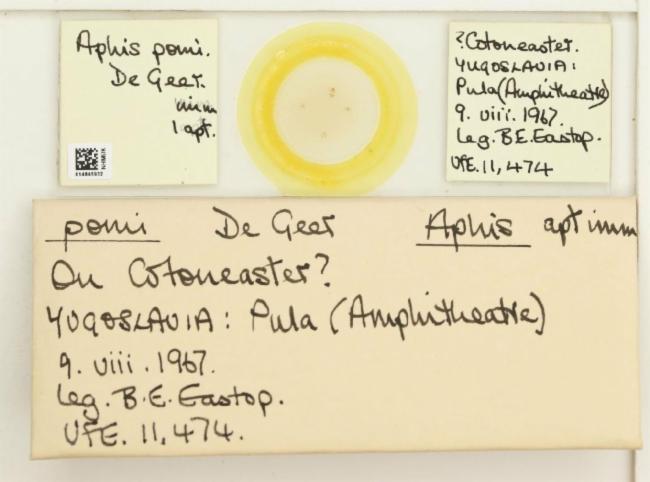 Aphis pomi.
De Geer.
imm
1 apt.
NHMUK
?Cotoneaster.
YUGOSLAVIA:
Pula (Amphitheatre)
9. viii. 1967.
Leg. B.E. Eastop.
VFE. 11,474
pomi De Geer Aphis apt imm
On Cotoneaster?
YUGOSLAVIA: Pula (Amphitheatre)
9. viii. 1967.
Leg. B.E. Eastop.
VFE. 11,474.